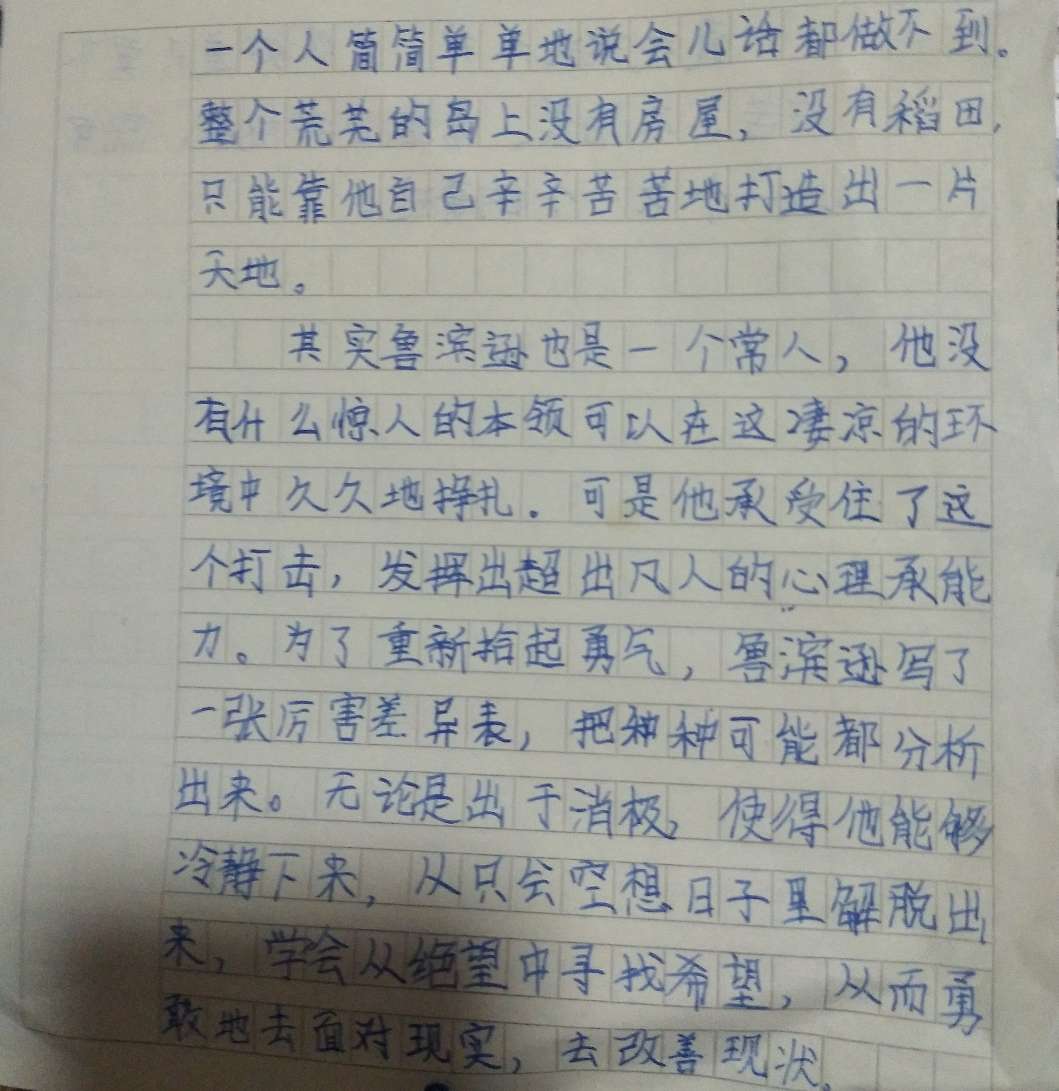 一个人简简单单地说会儿话都做不到。
整个荒芜的岛上没有房屋，没有稻田，
只能靠他自己辛辛苦苦地打造出一片
天地。
其实鲁滨逊也是一个常人，他没
有什么惊人的本领可以在这凄凉的环
境中久久地挣扎．可是他承受住了这
个打击，发挥出超出凡人的心理承能
力。为了重新拾起勇气，鲁滨逊写了
一张厉害差异表，把种种可能都分析
出来。无论是出于消极，使得他能够
冷静下来，从只会空想日子里解脱出
来，学会从绝望中寻找希望，从而勇
敢地去面对现实，去改善现状．